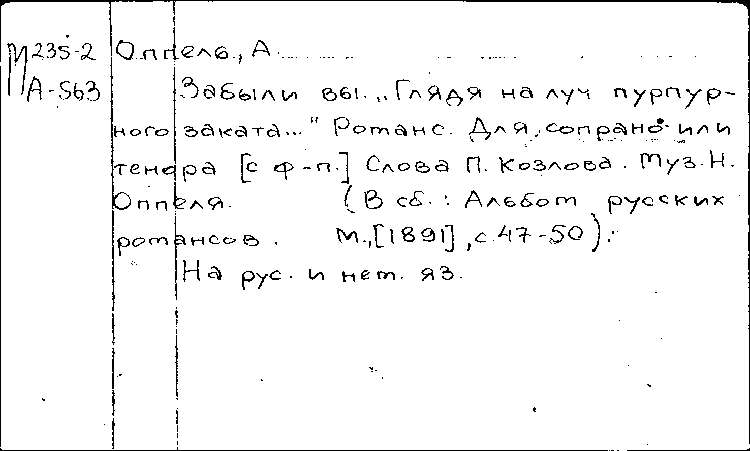 М 235-2 Оппель, А.
А-563 Забыли вы. „Глядя на луч пурпур-
ного заката..." Романс. Для сопрано или
тенора [с ф-п.] Слова П. Козлова. Муз. Н.
Оппеля. (В сб.: Альбом русских
романсов. М., [1891], с. 47-50).
На рус. и нем. яз.